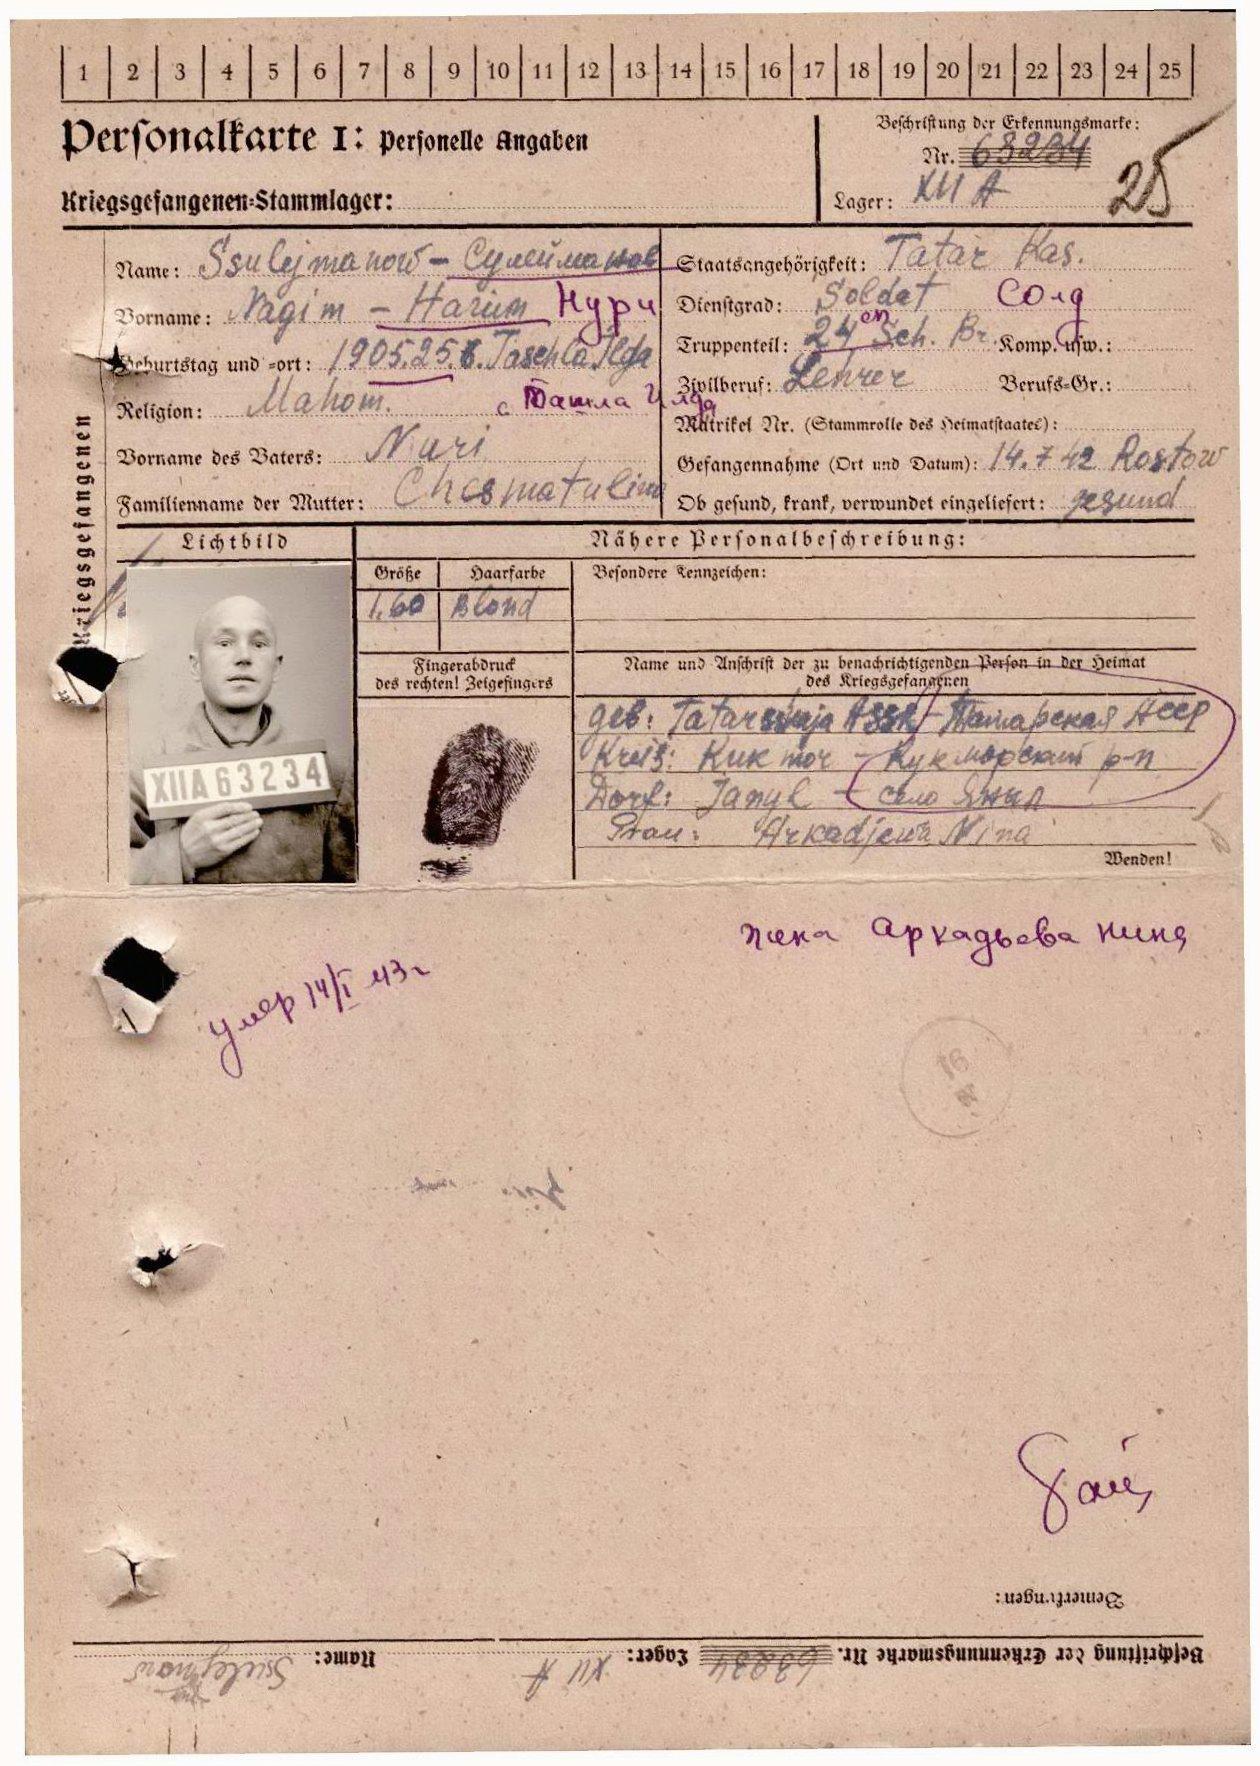 1 2 3 4 5 6 7 8 9 10 11 12 13 14 15 16 17 18 19 20 21 22 23 24 25
Personalkarte I: Personelle Angaben
Kriegsgefangenen-Stammlager:
Beschriftung der Erkennungsmarke:
Nr. 63234
Lager: XII A
25
Name: Ssulejmanow – Сулейманов
Vorname: Nagim – Нагим Нури
Geburtstag und -ort: 1905.25.6. Taschla Ilga
с Ташла Илга
Religion: Mahom.
Vorname des Vaters: Nuri
Familienname der Mutter: Chesmatulina
Staatsangehörigkeit: Tatar Kas.
Dienstgrad: Soldat Солд
Truppenteil: 24 сп Sch. Br. Komp. usw.:
Zivilberuf: Lehrer Berufs-Gr.:
Matrikel Nr. (Stammrolle des Heimatstaates):
Gefangennahme (Ort und Datum): 14.7 42 Rostow
Ob gesund, krank, verwundet eingeliefert: gesund
Kriegsgefangenen
Lichtbild
Nähere Personalbeschreibung:
Größe Haarfarbe Besondere Kennzeichen:
1,60 Blond
Fingerabdruck
des rechten! Zeigefingers
Name und Anschrift der zu benachrichtigenden Person in der Heimat
des Kriegsgefangenen
geb: Tatarskaja ASSR – Татарская АССР
Kreis: Kukmor – Кукморский р-н
Dorf: Janyl – село Яныл
Frau: Arkadjewa Nina
Wenden!
XIIA 63234
жена Аркадьева Нина
умер 14/I 43г
Bemerkungen:
Beschriftung der Erkennungsmarke Nr. 63234 Lager: XII A Name: Ssulejmanow